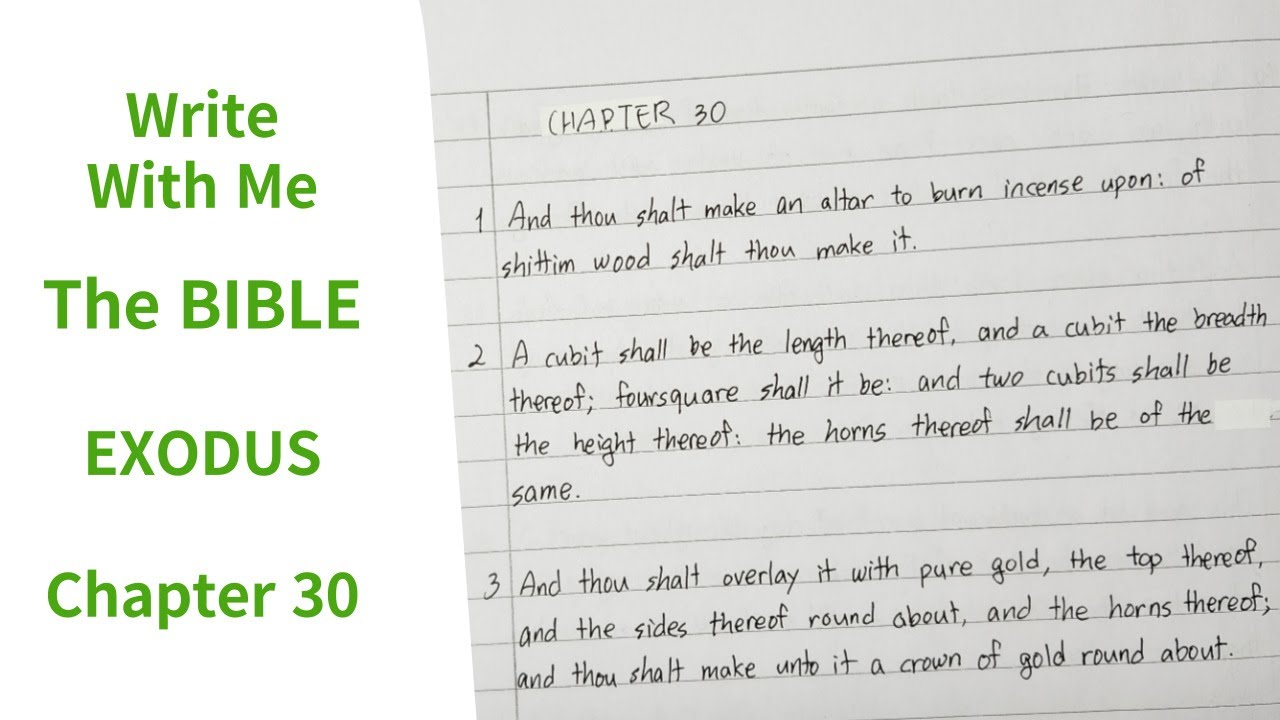 Write
With Me
The BIBLE
EXODUS
Chapter 30
CHAPTER 30
1 And thou shalt make an altar to burn incense upon: of
shittim wood shalt thou make it.
2 A cubit shall be the length thereof, and a cubit the breadth
thereof; foursquare shall it be: and two cubits shall be
the height thereof: the horns thereof shall be of the
same.
3 And thou shalt overlay it with pure gold, the top thereof,
and the sides thereof round about, and the horns thereof;
and thou shalt make unto it a crown of gold round about.